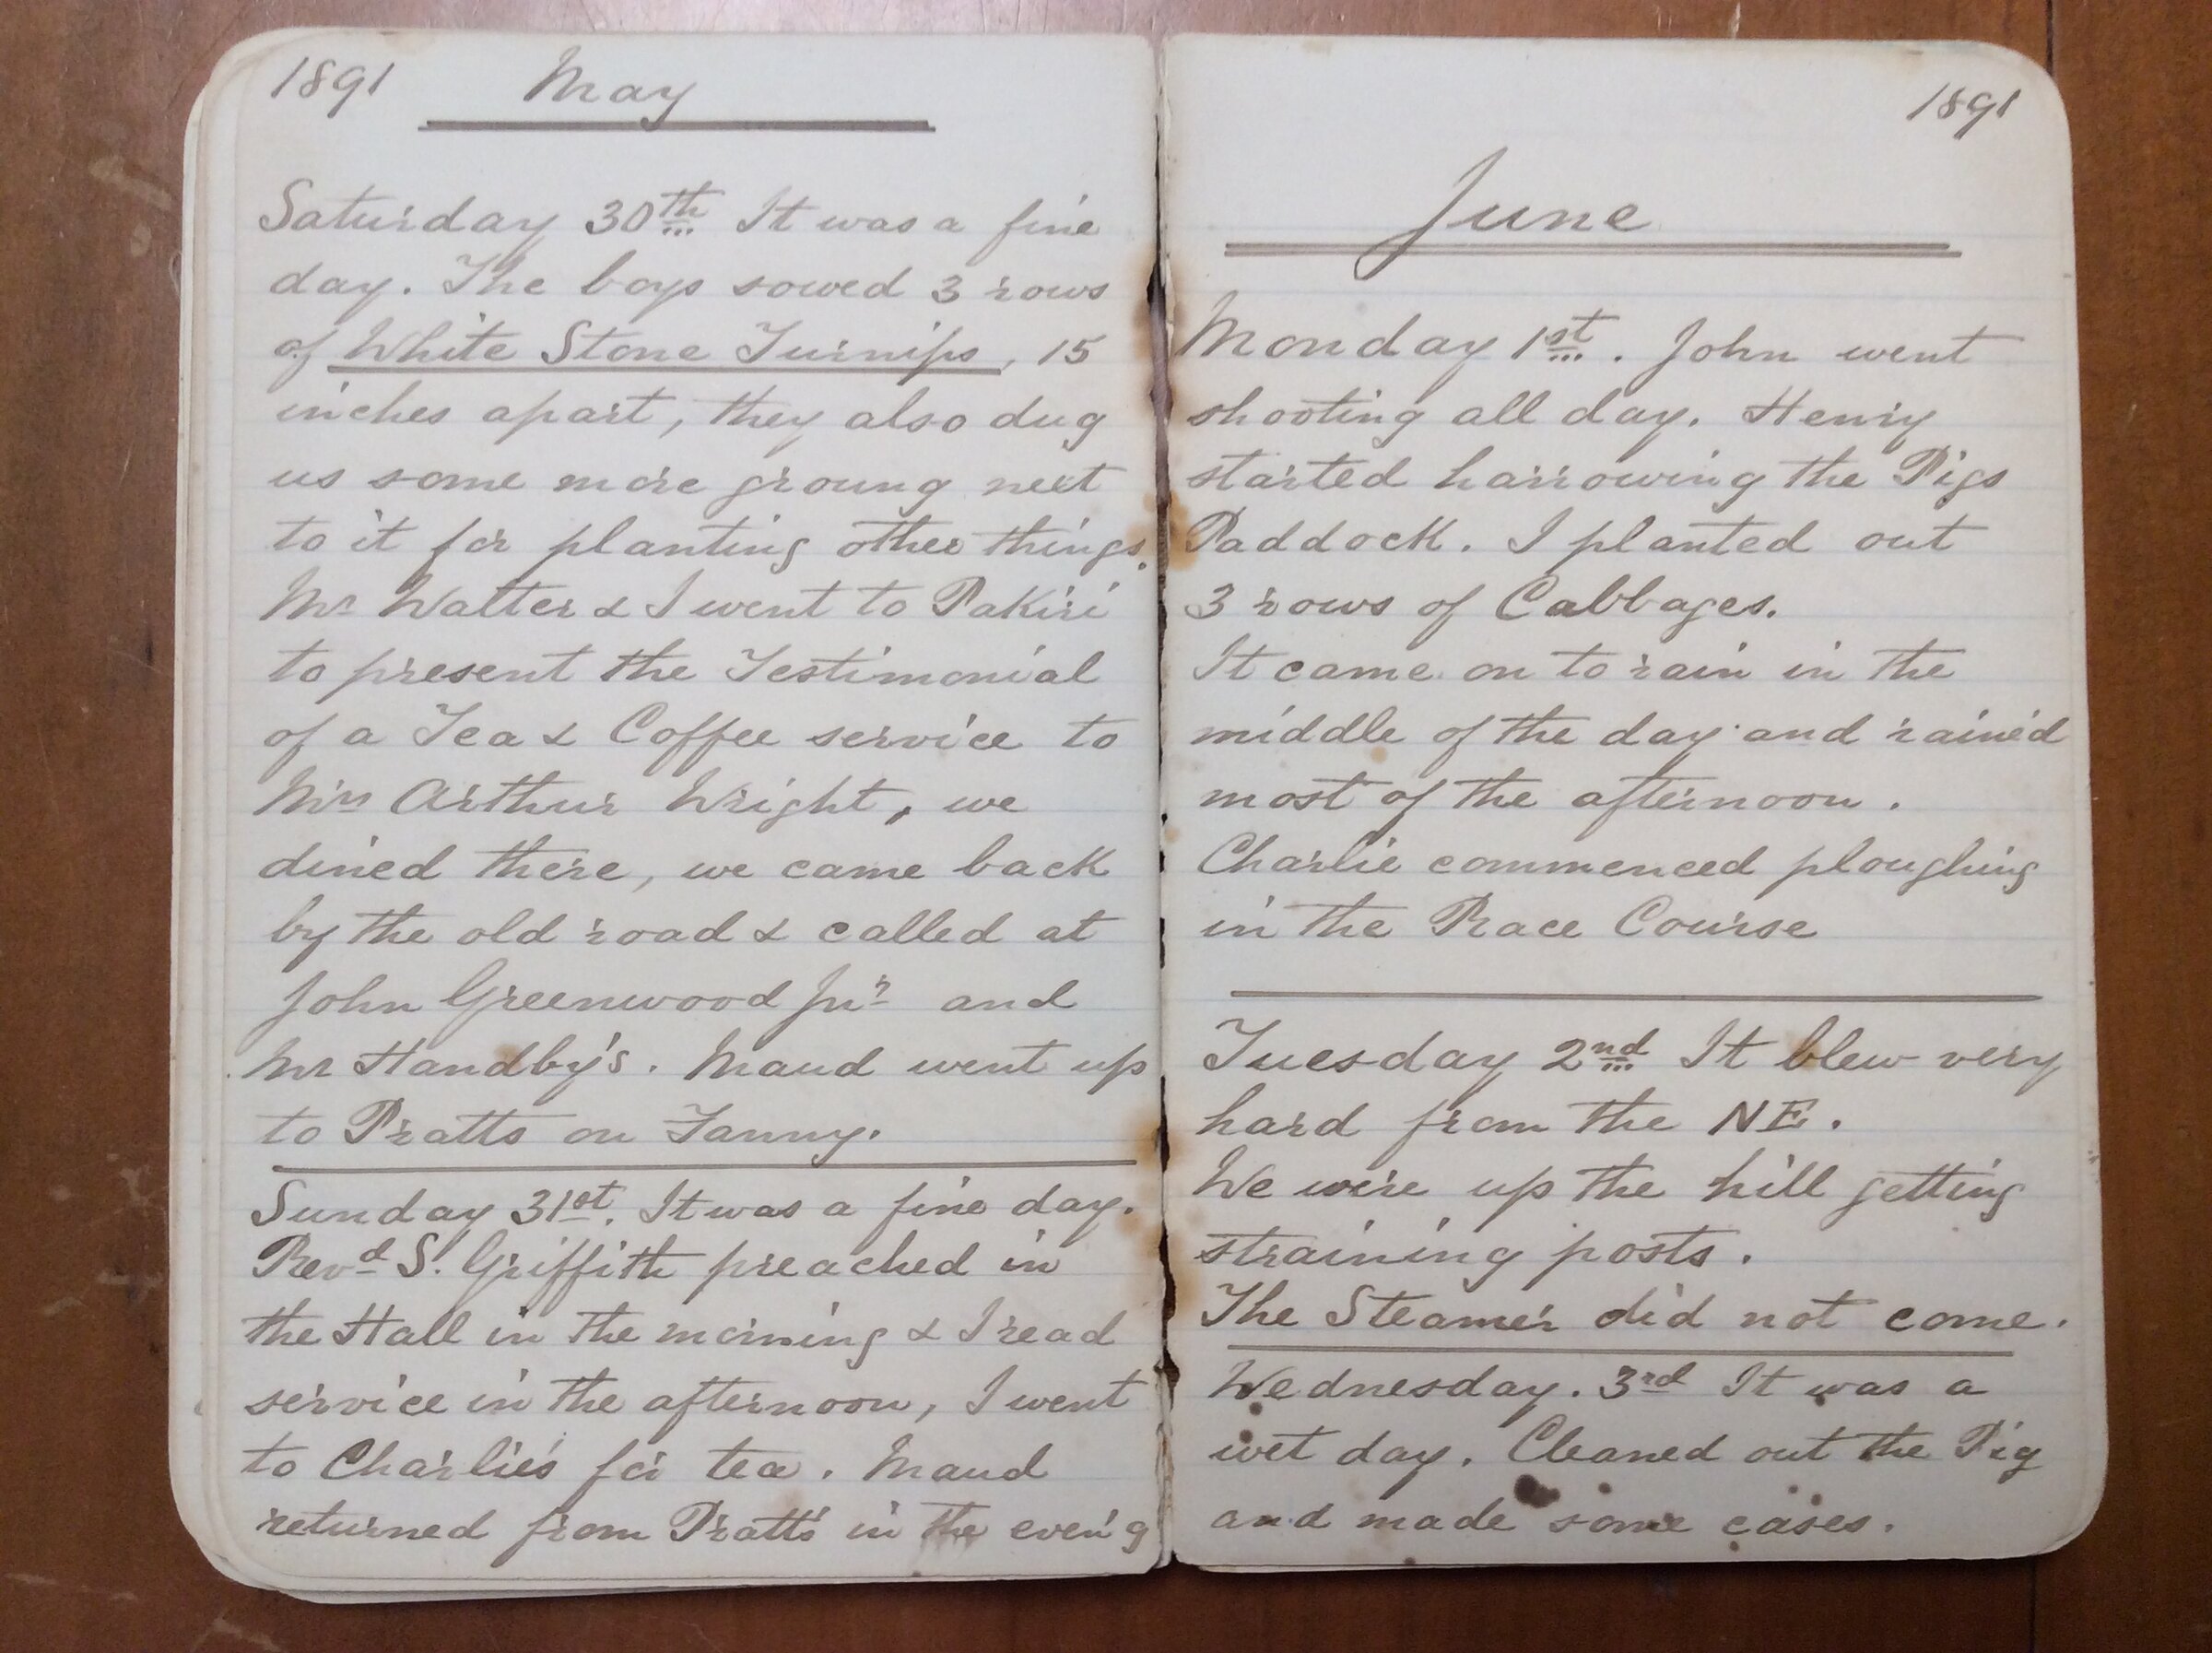 1891 May
Saturday 30th It was a fine
day. The boys sowed 3 rows
of White Stone Turnips, 15
inches apart, they also dug
us some more groung next
to it for planting other things.
Mr Walter & I went to Pakiri
to present the Testimonial
of a Tea & Coffee service to
Mrs Arthur Wright, we
dined there, we came back
by the old road & called at
John Greenwood Junr and
Mr Handby's. Maud went up
to Pratts on Fanny.
Sunday 31st. It was a fine day.
Revd S. Griffith preached in
the Hall in the morning & I read
service in the afternoon, I went
to Charlie's for tea. Maud
returned from Pratts in the even'g
1891
June
Monday 1st. John went
shooting all day. Henry
started harrowing the Pigs
Paddock. I planted out
3 rows of Cabbages.
It came on to rain in the
middle of the day and rained
most of the afternoon.
Charlie commenced ploughing
in the Race Course
Tuesday 2nd It blew very
hard from the NE.
We were up the hill getting
straining posts.
The Steamer did not come.
Wednesday. 3rd It was a
wet day. Cleaned out the Pig
and made some cases.